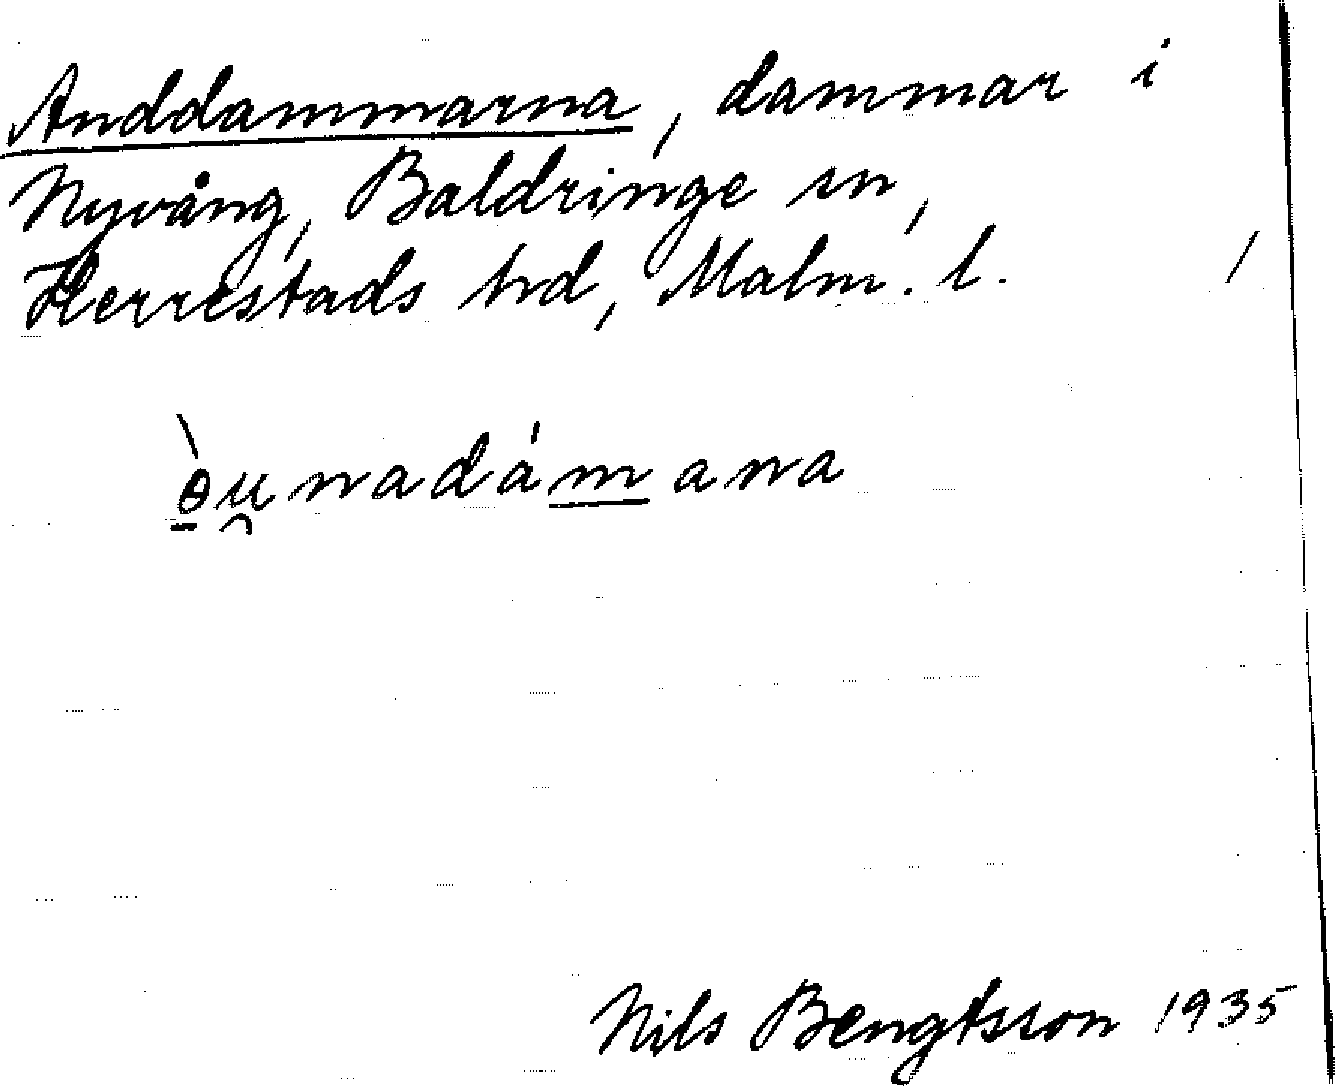 Anddammarna, dammar i
Nyvång, Baldringe sn,
Herrestads hrd, Malm. l. /
ɵ̠̀u̯nadámana
Nils Bengtsson 1935